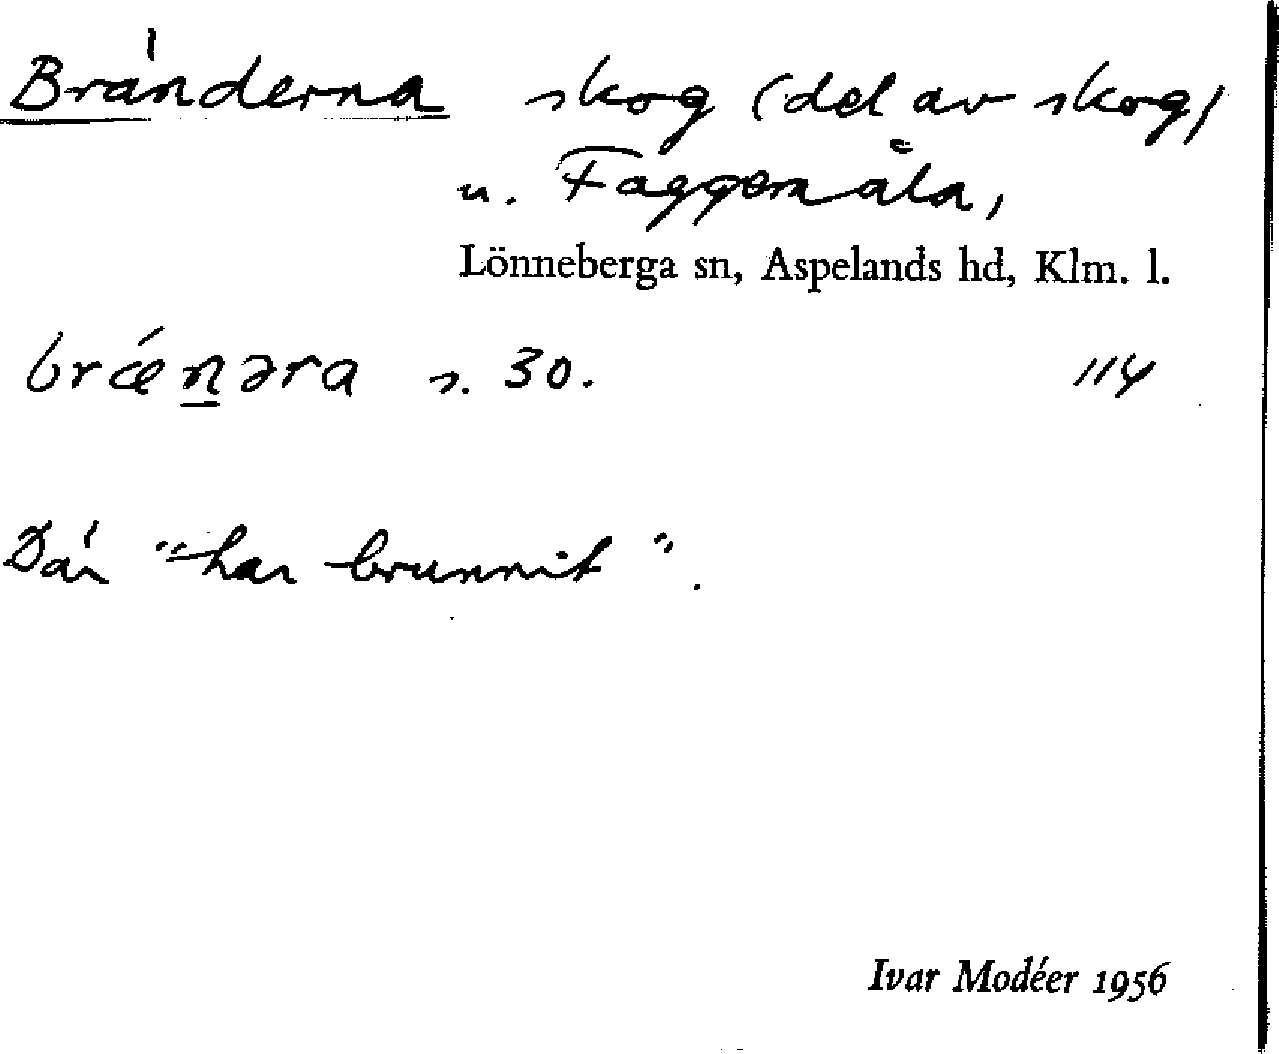 Bränderna skog (del av skog)
u. Faggemåla,
Lönneberga sn, Aspelands hd, Klm. l.
brǽn̲əra s. 30. 114
Där "har brunnit".
Ivar Modéer 1956